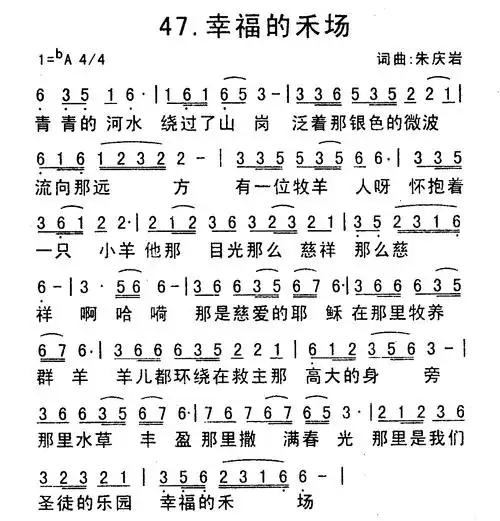 47.幸福的禾场
1=ᵇA 4/4 词曲:朱庆岩
6 3 5 1 6·|1 6 1 6 5 3-|3 3 6 5 3 5 2 2 1|
青 青的 河水 绕过了山 岗 泛着那银色的微波
6 1 6 1 2 3 2 2-|3 3 5 5 3 5 6 6·|3 3 5
流向那远 方 有一位牧羊 人呀 怀抱着
3 6 1 2 2·|2 1 2 3 6 3 2 3 2 1|3 5 2 3 1 6
一只 小羊 他那 目光那么 慈祥 那么慈
6-|3· 5 6 6-|3 6 6 6 3 5 6 7 6·|3 6 6 6 3 5
祥 啊 哈 嗬 那是慈爱的耶 稣 在那里牧养
6 7 6·|3 6 6 6 6 3 5 2 2 1|6 1 2 3 5 6 3-|
群 羊 羊儿都环绕在救主那 高大的身 旁
3 6 6 6 3 5 6 7 6·|7 6 7 6 7 6 5 3·|2 1 2 3 6
那里水草 丰 盈 那里撒 满春 光 那里是我们
3 2 3 2 1|3 5 6 2 3 1 6 6-‖
圣徒的乐园 幸福的禾 场